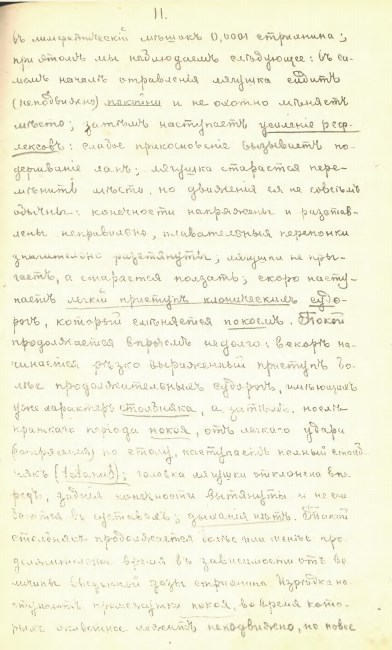 11.
въ лимфатическій мѣшокъ 0,0001 стрихнина;
при этомъ мы наблюдаемъ слѣдующее: въ са-
момъ началѣ отравленія лягушка сидитъ
(неподвижно) и не охотно мѣняетъ
мѣсто; затѣмъ наступаетъ усиленіе реф-
лексовъ: слабое прикосновеніе вызываетъ по-
дергиваніе лапъ; лягушка старается пере-
мѣнить мѣсто, но движенія ея не совсѣмъ
обычны: конечности напряжены и разстав-
лены неправильно, плавательныя перепонки
значительно растянуты; лягушка не пры-
гаетъ, а старается ползать; скоро насту-
паетъ легкій приступъ клоническихъ судо-
рогъ, который смѣняется покоемъ. Покой
продолжается впрочемъ недолго: вскорѣ на-
чинается рѣзко выраженный приступъ бо-
лѣе продолжительныхъ судорогъ, имѣющихъ
уже характеръ столбняка, а затѣмъ, послѣ
краткаго періода покоя, отъ легкаго удара
по столу, наступаетъ полный столб-
някъ (tetanus); головка лягушки отклонена впе-
редъ, заднія конечности вытянуты и не сги-
баются въ суставахъ; дыханія нѣтъ. Такой
столбнякъ продолжается болѣе или менѣе про-
должительное время въ зависимости отъ ве-
личины введенной дозы стрихнина. Изрѣдка на-
ступаютъ промежутки покоя, во время кото-
рыхъ животное лежитъ неподвижно, но новое